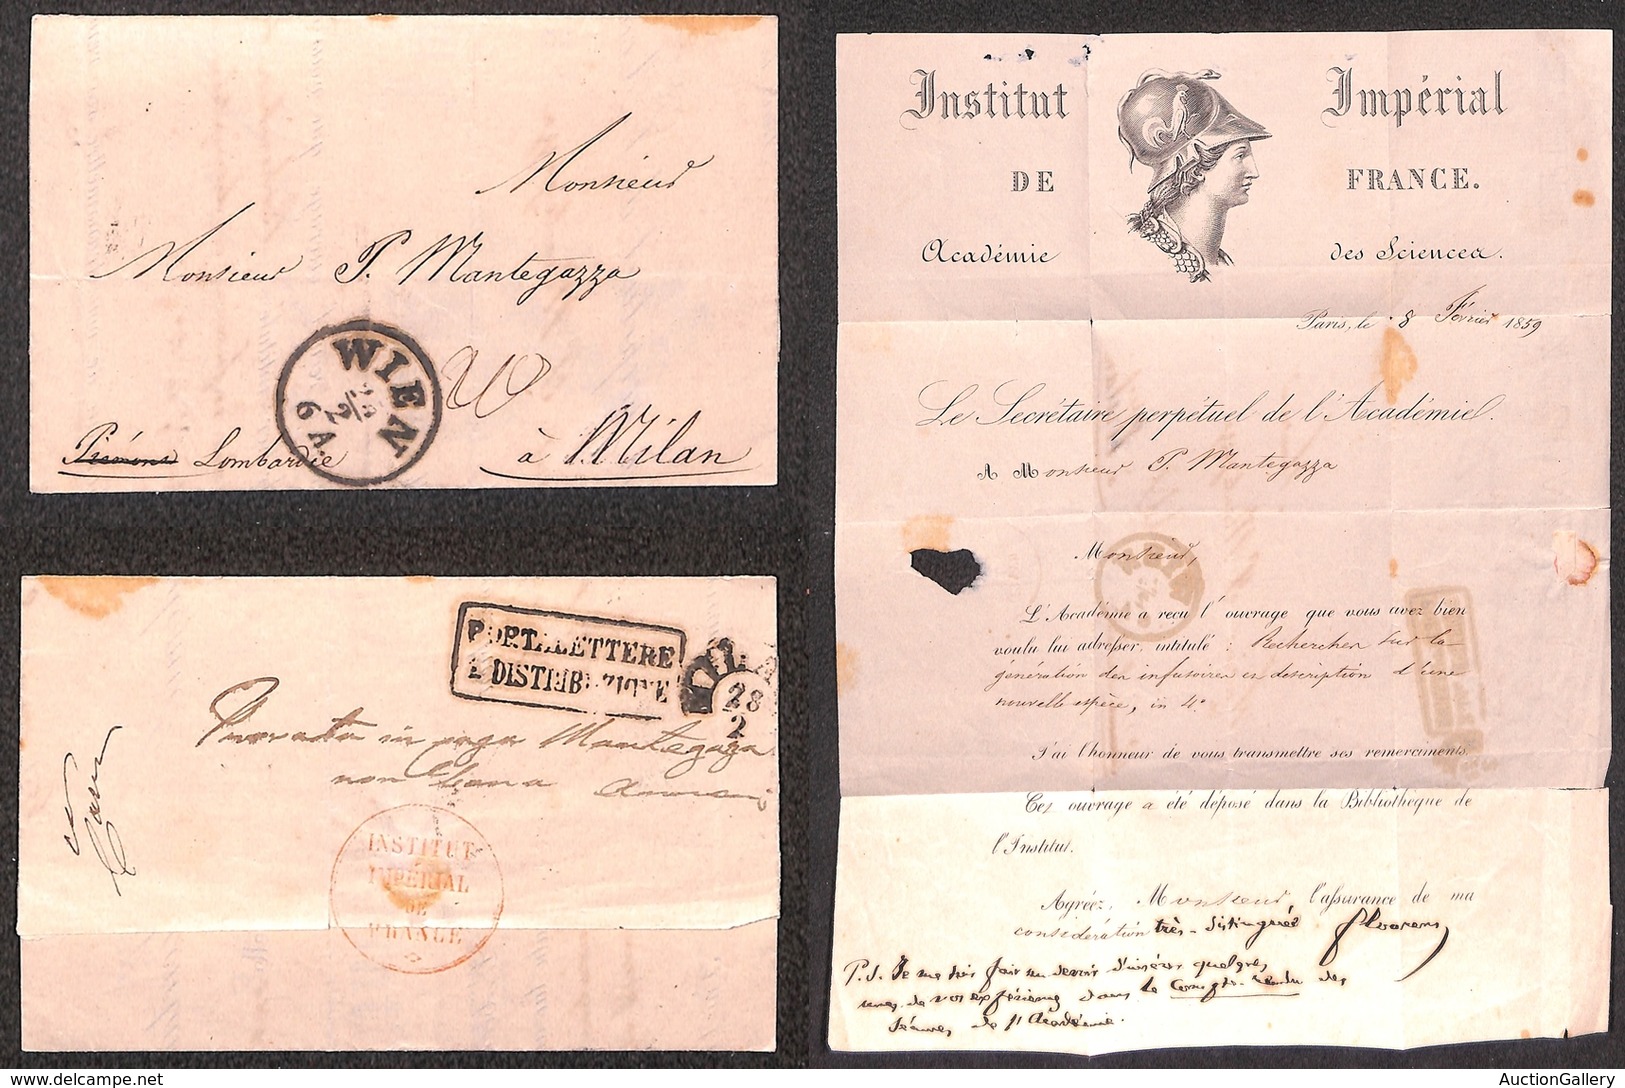 Monsieur
Monsieur P. Mantegazza
WIEN
2
6 A.
20
Piémont Lombardie
à Milan
PORTALETTERE
DISTRIBUZIONE
MILA
28
2
in Mantegazza
non
INSTITUT
IMPÉRIAL
DE
FRANCE
Institut Impérial
DE FRANCE.
Académie des Sciences.
Paris, le 8 Février 1859
Le Secrétaire perpétuel de l'Académie.
A Monsieur P. Mantegazza
Monsieur,
L'Académie a reçu l'ouvrage que vous avez bien
voulu lui adresser, intitulé : Recherches sur la
génération des infusoires et description d'une
nouvelle espèce, in 4°
J'ai l'honneur de vous transmettre ses remerciments.
Cet ouvrage a été déposé dans la Bibliothèque de
l'Institut.
Agréez, Monsieur, l'assurance de ma
considération très-distinguée Flourens
P.S. Je me suis fait un devoir d'insérer quelques
unes de vos expériences dans le Compte-rendu des
séances de l'Académie.
AuctionGallery